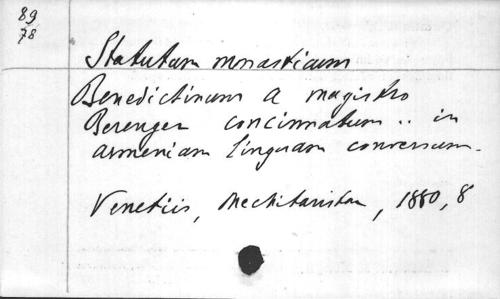 89
78
Statutum monasticum
Benedictinum a magistro
Berenger concinnatum .. in
armeniam linguam conversum.
Venetiis, Mechitaristan, 1880, 8